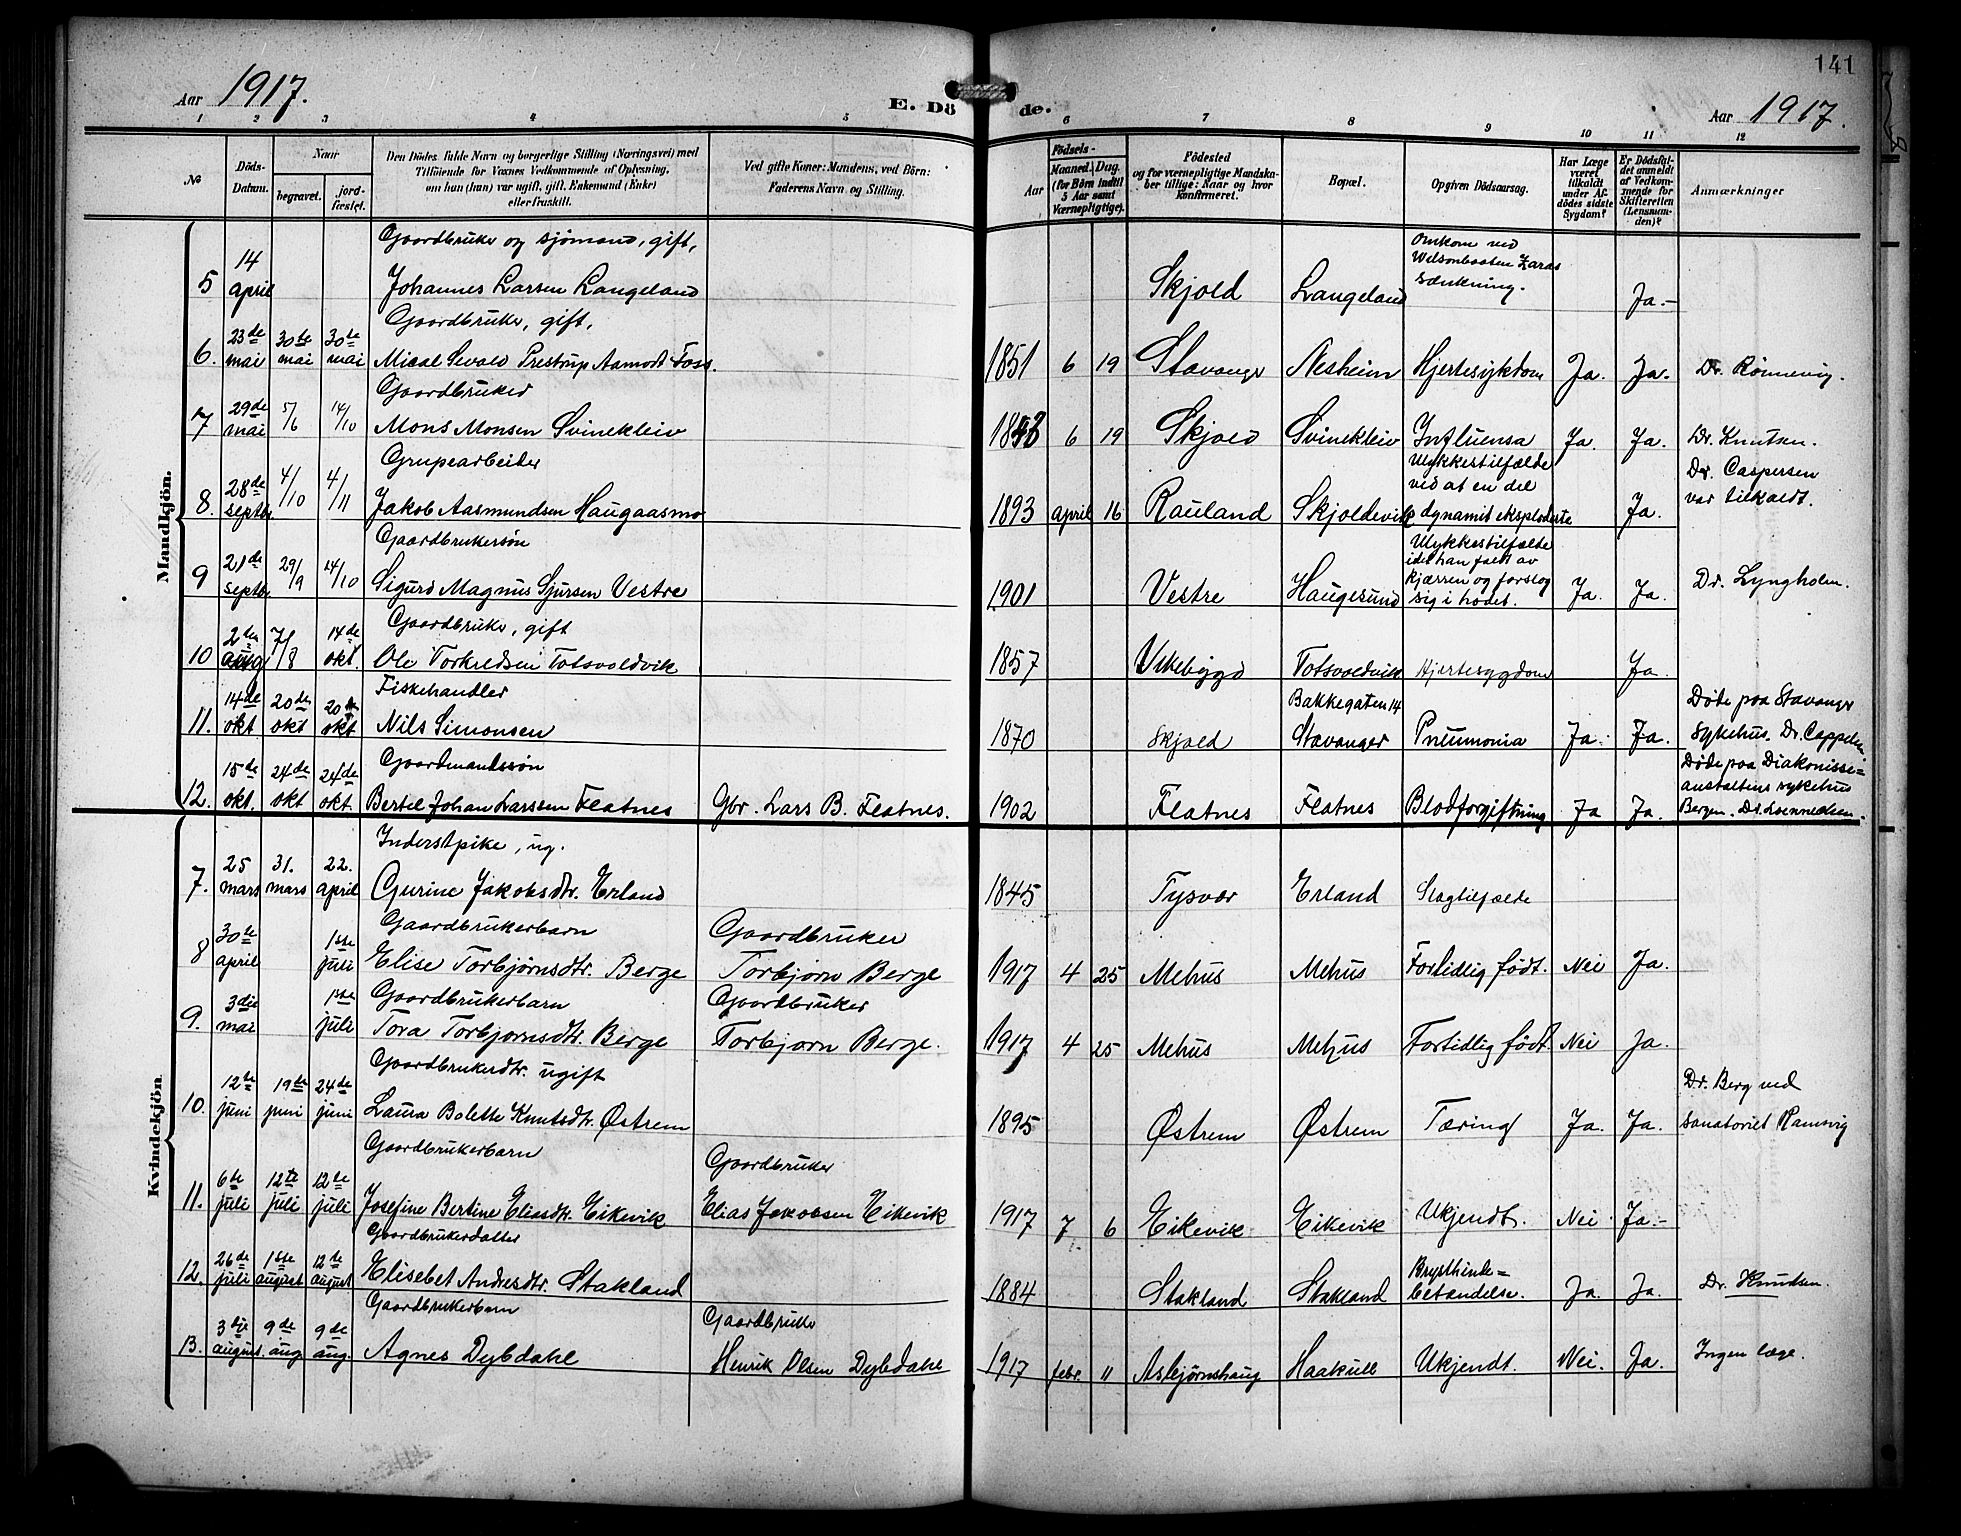 141
Aar 1917.
E. Dö de.
Aar 1917.
1 2 3 4 5 6 7 8 9 10 11 12
No
Döds-Datum.
Naar
begravet.
jord-fæstet.
Den Dödes fulde Navn og borgerlige Stilling (Næringsvei) med
Tilföiende for Voxnes Vedkommende af Oplysning,
om hun (han) var ugift, gift, Enkemand (Enke)
eller fraskilt.
Ved gifte Koner: Mandens, ved Börn:
Faderens Navn og Stilling.
Födsels-
Aar
Maaned. Dag.
(for Börn indtil
5 Aar samt
Værnepligtige).
Födested
og for værnepligtige Mandska-
ber tillige: Naar og hvor
konfirmeret.
Bopæl.
Opgiven Dödsaarsag.
Har Læge
været
tilkaldt
under Af-
dödes sidste
Sygdom?
Er Dödsfal-
det anmeldt
af Vedkom-
mende for
Skifteretten
(Lensman-
den)?
Anmærkninger
Mandkjön.
5 14 april Gaardbruker og sjømand, gift,
Johannes Larsen Langeland Skjold Langeland Omkom ved
Wilsonbaaten Zaras
sænkning. Ja.-
6. 23de mai 30te mai 30te mai Gaardbruker, gift,
Mical Sevald Prestrup Aamodt Foss. 1851 6 19 Stavanger Nesheim Hjertesykdom Ja. Ja. Dr. Rønnevig.
7 29de mai 5/6 14/10 Gaardbruker
Mons Monsen Svinekleiv 6 19 Skjold Svinekleiv Influensa Ja. Ja. Dr. Knutsen.
8. 28de septbr. 4/10 4/11 Grupearbeider
Jakob Aasmundsen Haugaasmo 1893 april 16 Rauland Skjoldevik Ulykkestilfælde
ved at en del
dynamit eksploderte Ja. Dr. Caspersen
var tilkaldt.
9 21de septbr. 29/9 14/10 Gaardbrukersøn
Sigurd Magnus Sjursen Vestre 1901 Vestre Haugesund Ulykkestilfælde
idet han faldt av
kjærren og forslog
sig i hodet. Ja. Ja. Dr. Lyngholm.
10 2den aug 7/8 14de okt. Gaardbruker, gift
Ole Torkredsen Totsvoldvik 1857 Vikebygd Totsvoldvik Hjertesygdom Ja.
11. 14de okt 20de okt 20de okt Fiskehandler
Nils Simonsen 1870 Skjold Bakkegaten 14
Stavanger Pneumonia Ja. Ja. Døde paa Stavanger
Sykehus. Dr. Cappelen
12. 15de okt. 24de okt 24de okt. Gaardmandssøn
Bertel Johan Larssen Flatnes Gbr. Lars B. Flatnes. 1902 Flatnes Flatnes Blodforgiftning Ja Ja. Døde paa Diakonisse=
anstaltens sykehus
Bergen. Dr.
Kvindekjön
7. 25 mars 31. mars 22. april Inderstpike, ug.
Gurine Jakobsdtr. Erland 1845 Tysvær Erland Slagtilfælde
8 30te april 1ste juli Gaardbrukerbarn
Elise Torbjørnsdtr. Berge Gaardbruker
Torbjørn Berge 1917 4 25 Mehus Mehus Fortidlig født. Nei Ja.
9. 3die mai 1ste juli Gaardbrukerbarn
Tora Torbjørnsdtr. Berge Gaardbruker
Torbjørn Berge. 1917 4 25 Mehus Mehus Fortidlig født Nei Ja.
10. 12te juni 19de juni 24de juni Gaardbrukerdtr. ugift
Laura Bolette Knutsdtr. Østrem 1895 Østrem Østrem Tæring Ja. Ja. Dr. Berg ved
sanatoriet Ramsvig
11. 6te juli 12te juli 12te juli Gaardbrukerbarn
Josefine Bertine Eliasdtr. Eikevik Gaardbruker
Elias Jakobsen Eikevik 1917 7 6 Eikevik Eikevik Ukjendt. Nei Ja.-
12. 26de juli 1ste august 12te august Gaardbrukerdatter
Elisebet Andresdtr. Stakland 1884 Stakland Stakland Brysthinde=
betændelse. Ja. Ja. Dr. Knudsen.
13. 3dje august. 9de aug 9de aug. Gaardbrukerbarn
Agnes Dybdahl Gaardbruker
Henrik Olsen Dybdahl 1917 febr. 11 Asbjørnshaug Haakull Ukjendt. Nei. Ja. Ingen læge.